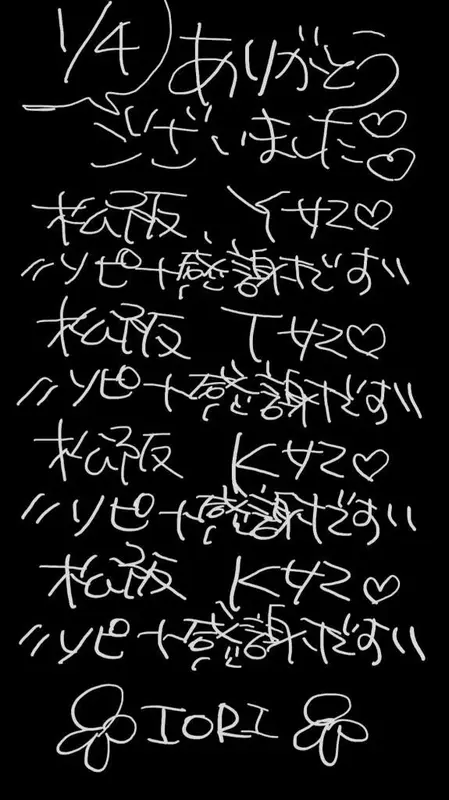 1/4 ありがとう
ございました♡♡
松阪 Yサマ♡
〃リピート感謝だす〃
松阪 Tサマ♡
〃リピート感謝だす〃
松阪 Kサマ♡
〃リピート感謝だす〃
松阪 Kサマ♡
〃リピート感謝だす〃
IORI